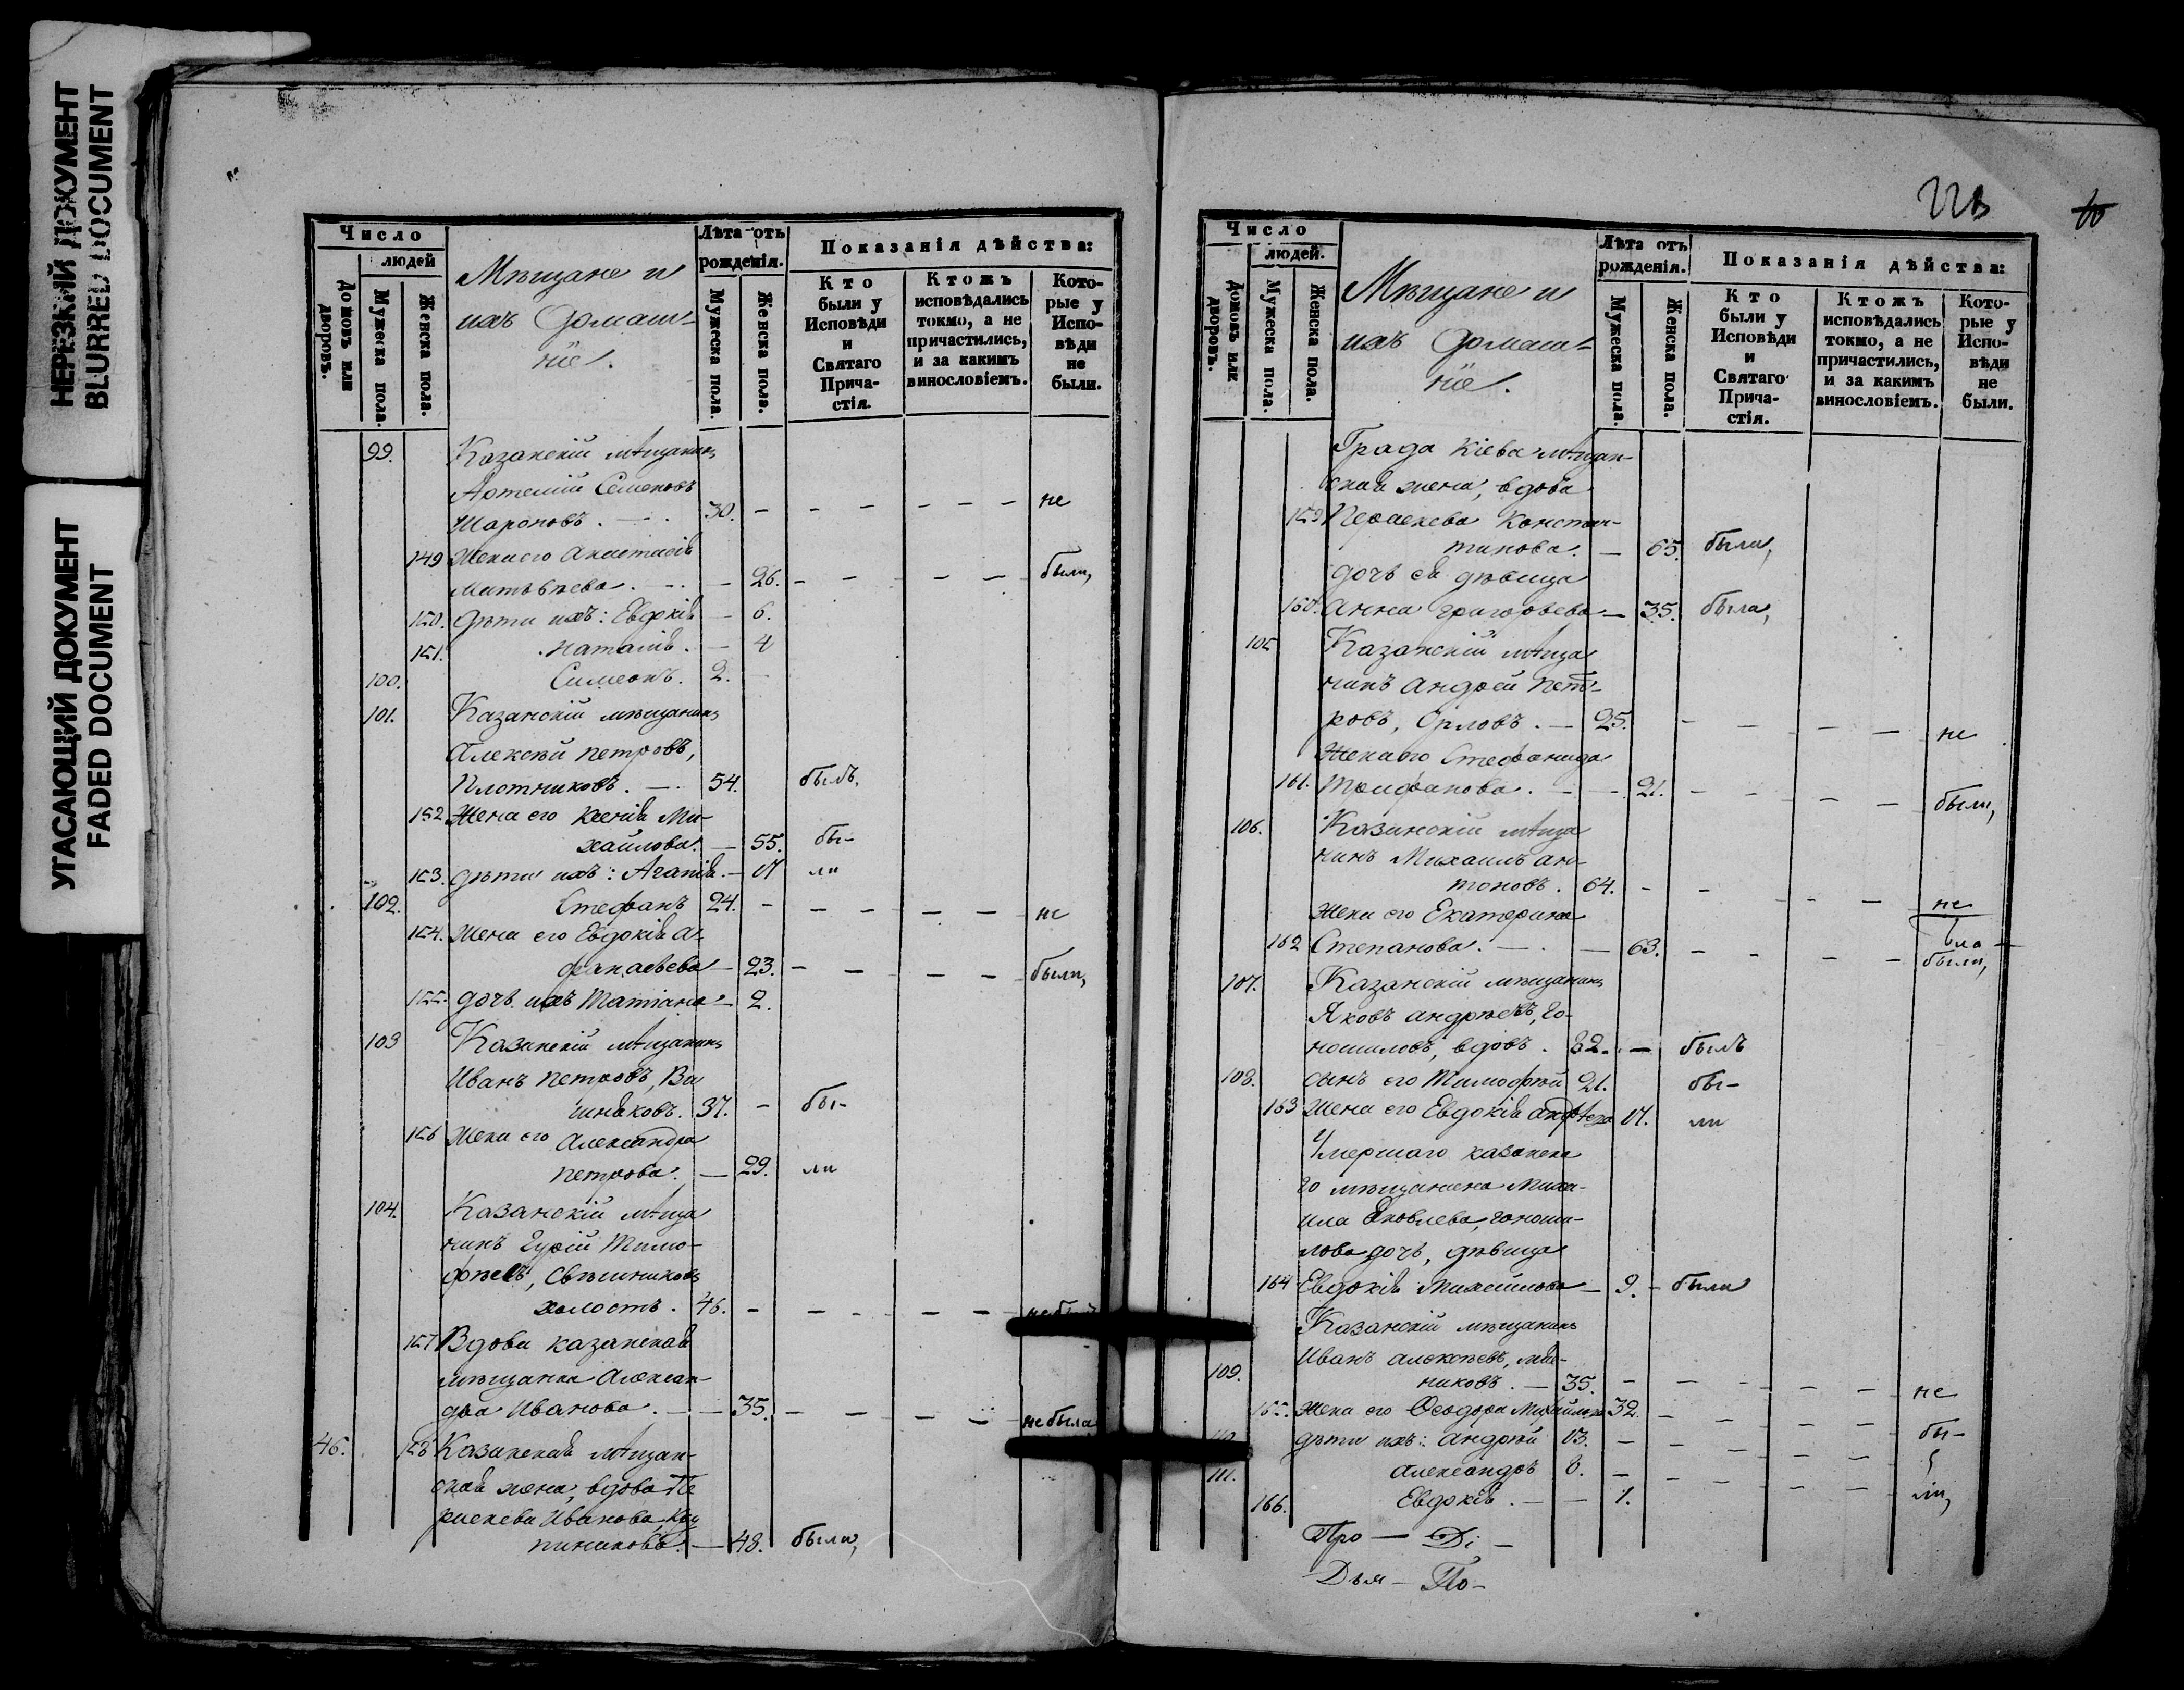 НЕРЕЗКИЙ ДОКУМЕНТ
BLURRED DOCUMENT
УГАСАЮЩИЙ ДОКУМЕНТ
FADED DOCUMENT
Число
людей
Домовъ или дворовъ.
Мужеска пола.
Женска пола.
Мѣщане и
ихъ домаш-
ніе.
Лѣта отъ
рожденія.
Мужеска пола.
Женска пола.
Показанія дѣйства:
Кто
были у
Исповѣди
и
Святаго
Прича-
стія.
Ктожъ
исповѣдались
токмо, а не
причастились,
и за какимъ
винословіемъ.
Кото-
рые у
Испо-
вѣди
не
были.
99. Казанскій мѣщанинъ
Артемій Семеновъ
Шароновъ. 30. — — — — — — не
149 Жена его Анастасія
Матвѣева. — 26. — — — — — были,
150. Дѣти ихъ: Евдокія — 6.
151. Наталія. — 4
100. Симеонъ. 2. —
101. Казанскій мѣщанинъ
Алексѣй Петровъ,
Плотниковъ. — 54. былъ,
152 Жена его Ксенія Ми-
хайлова. — 55. бы-
153. дѣти ихъ: Агапія. — 17 ли
102. Стефанъ 24. — — — — — не
154. Жена его Евдокія А-
фанасьева — 23. — — — — были,
155. дочь ихъ Татіана — 2.
103 Казанскій мѣщанинъ
Иванъ Петровъ, Ви
шняковъ. 37. — бы-
156 Жена его Александра
Петрова. — 29. ли
104. Казанскій мѣща
нинъ Гурій Тимо-
фѣевъ, Свѣшниковъ
холостъ. 46. — — — — — не былъ
157 Вдова казанская
мѣщанка Алексан-
дра Иванова. — — 35. — — — — не была
46. 158 Казанская мѣщан-
ская жена, вдова Па
раскева Иванова
— 48. была,
228
10
Число
людей.
Домовъ или дворовъ.
Мужеска пола.
Женска пола.
Мѣщане и
ихъ домаш-
ніе.
Лѣта отъ
рожденія.
Мужеска пола.
Женска пола.
Показанія дѣйства:
Кто
были у
Исповѣди
и
Святаго
Прича-
стія.
Ктожъ
исповѣдались
токмо, а не
причастились,
и за какимъ
винословіемъ.
Кото-
рые у
Испо-
вѣди
не
были.
Града Кіева мѣщан-
ская жена, вдова
159 Параскева Констан-
тинова. — 65. была,
дочь ея дѣвица
160. Анна Григорьева — 35. была,
105 Казанскій мѣща
нинъ Андрей Пет-
ровъ, Орловъ. — 25. — — — — не
Жена его Стефанида
161. Трифонова. — — 21. — — — — были,
106. Казанскій мѣща
нинъ Михаилъ Ан-
тоновъ. 64. — — — — не
Жена его Екатерина
162 Степанова. — — 63. — — — — были,
107. Казанскій мѣщанинъ
Яковъ Андреевъ, Го-
ношиловъ, вдовъ. 82. — былъ
108. сынъ его Тимофѣй 21. бы-
163 Жена его Евдокія Андреева 17. ли
Умершаго казанска
го мѣщанина Миха-
ила Яковлева, Гоноши-
лова дочь, дѣвица
164 Евдокія Михайлова — 9. — была
Казанскій мѣщанинъ
109. Иванъ Алексѣевъ, Мя-
никовъ. — 35. — — — — — не
165. Жена его Ѳеодора Михайлова 32. — — — — — бы-
110. дѣти ихъ: Андрей 13. — — — — —
111. Александръ 8. — — — — — ли,
166. Евдокія. — — 1.
Про — Ді —
Дья — По —